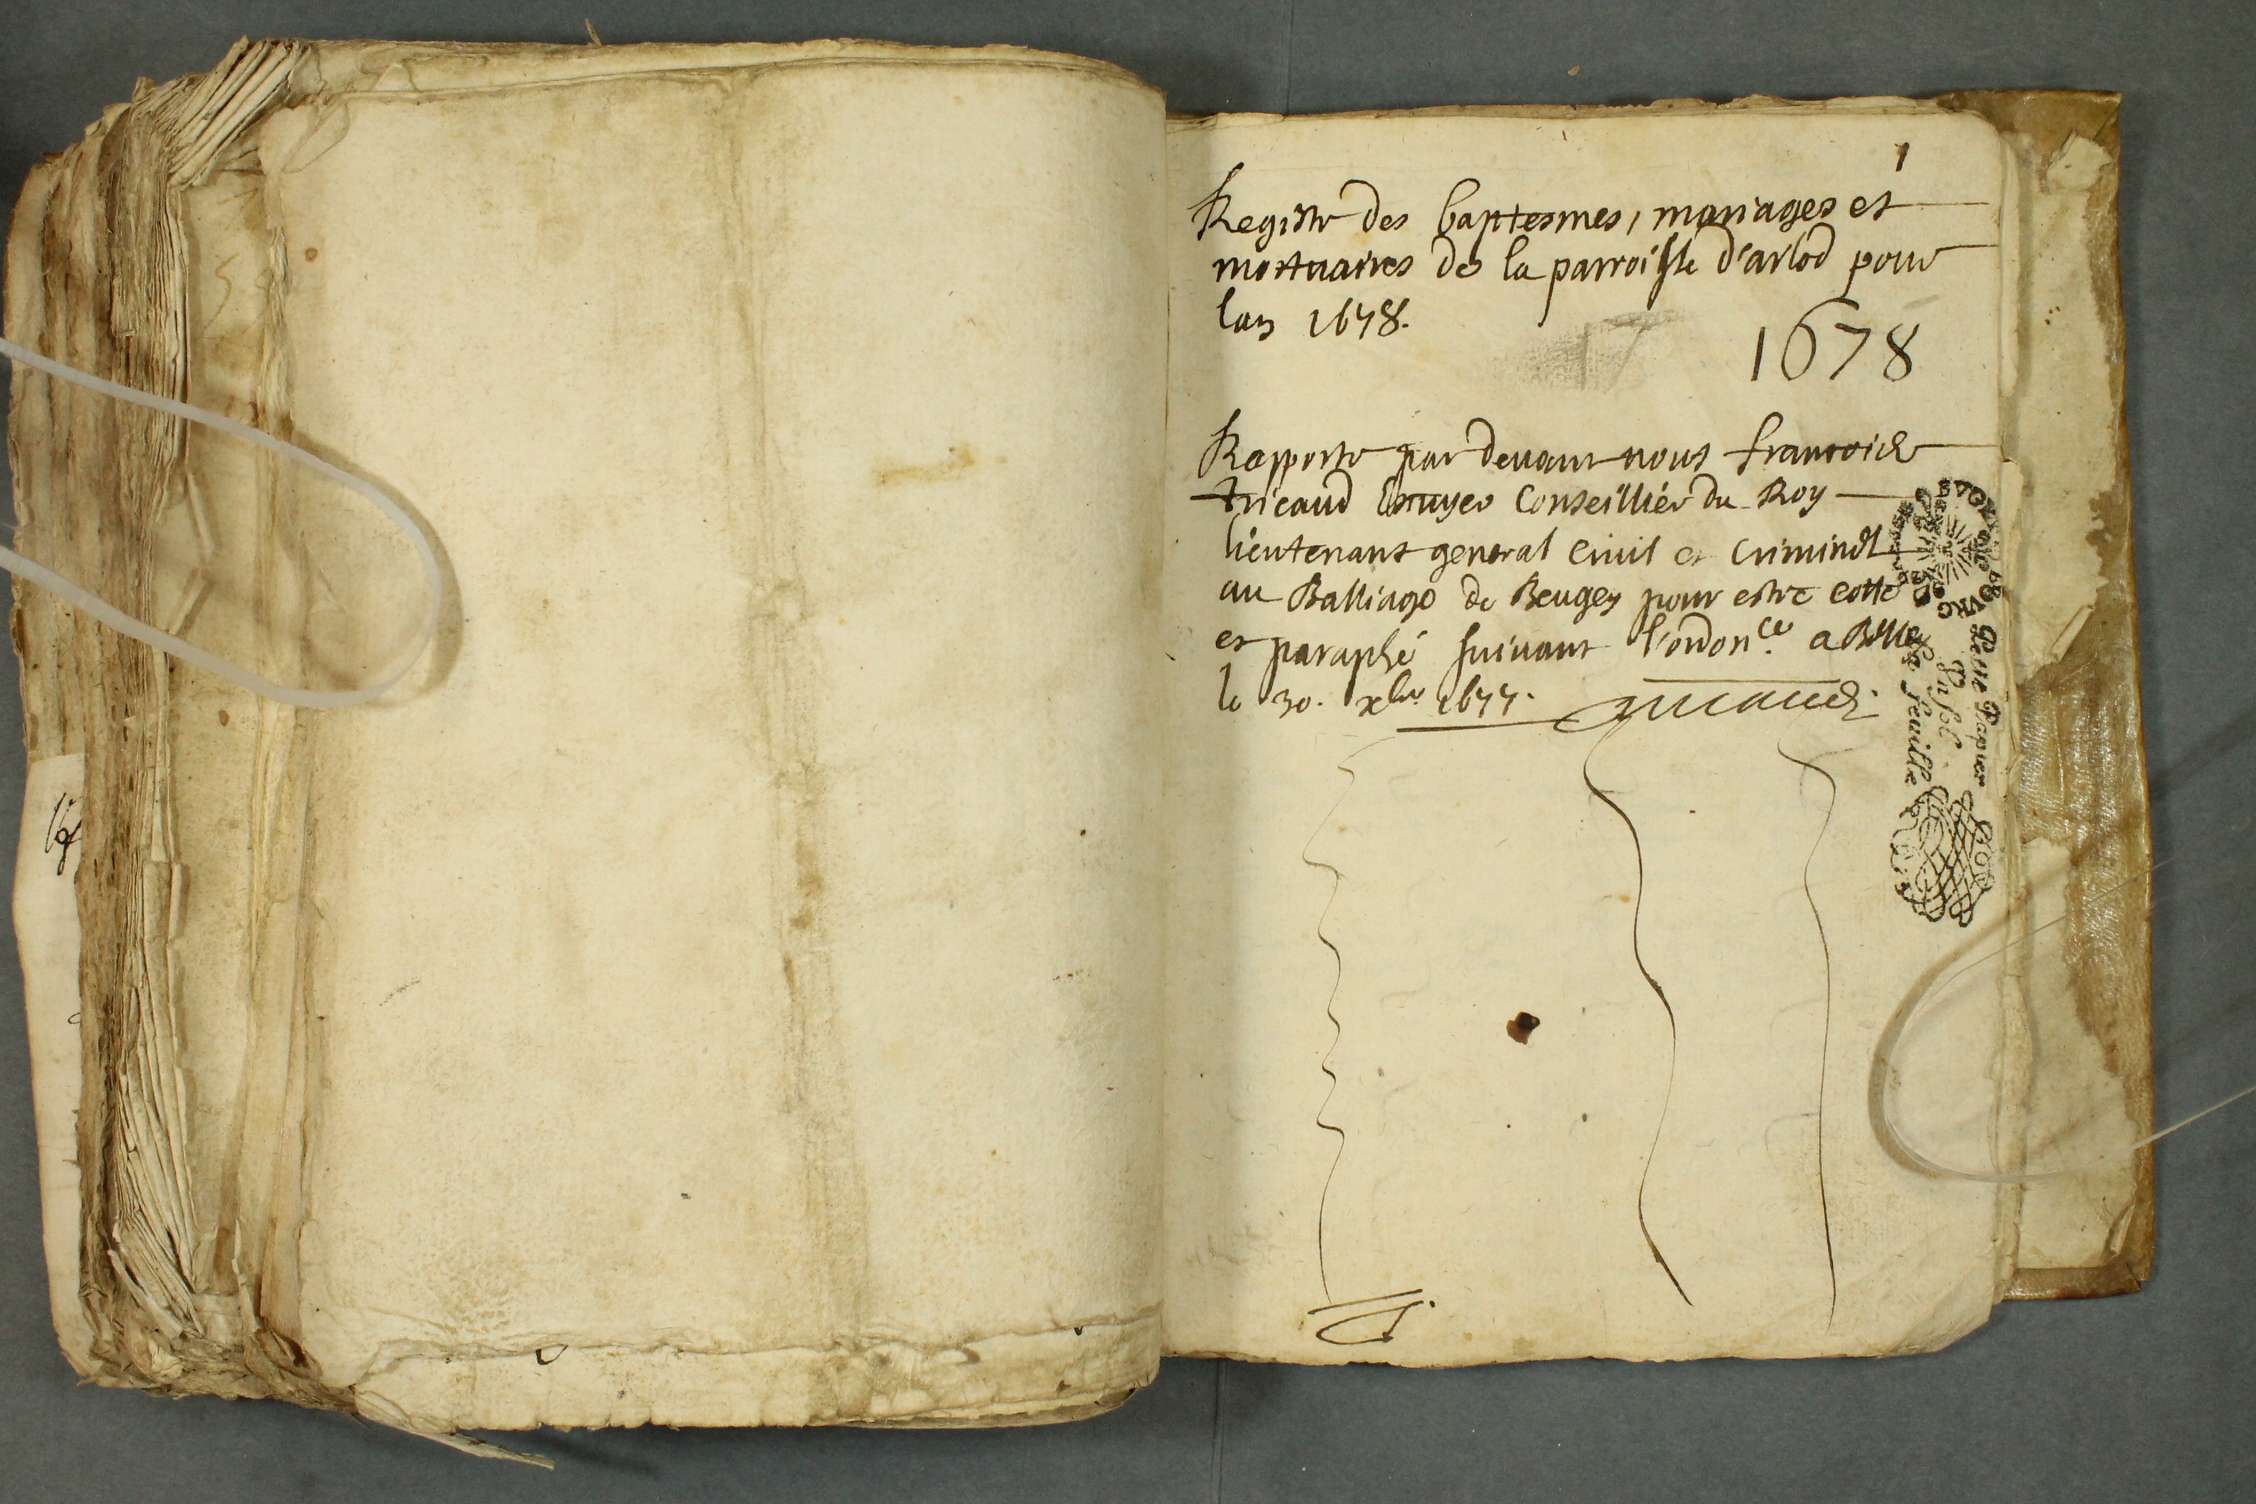 1
Registre des baptesmes, mariages et
mortuaires de la parroisse d'arlod pour
lan 1678.
1678
Rapporte par devant nous francois
tricaud Escuyer Conseillier du Roy
lieutenant general Civil et Criminel
au Balliage de Beugey pour estre cotté
et paraphé suivant l'ordon.ce a Belley
le 30. xbre 1677. Tricaud
Petit Papier
Un sol
la feuille